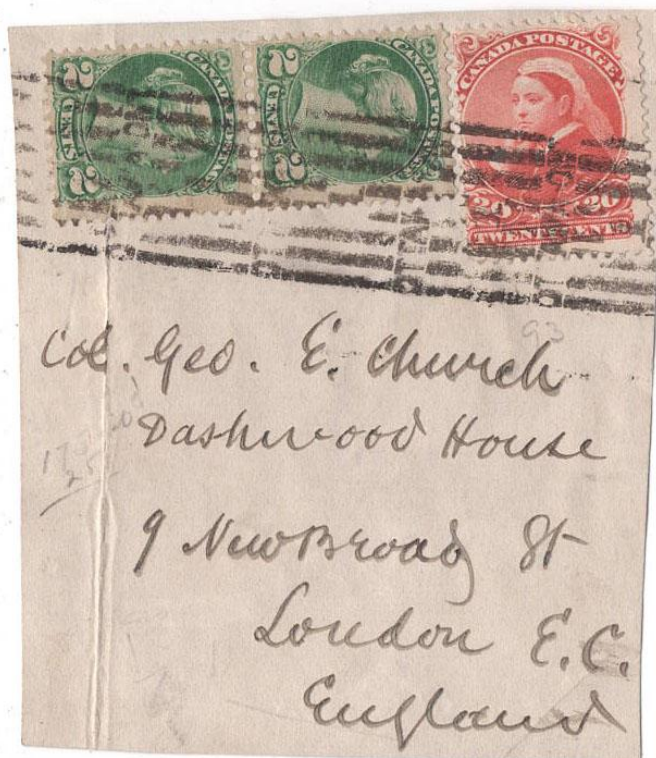 2 CANADA POSTAGE 2 CENTS
2 CANADA POSTAGE 2 CENTS
CANADA POSTAGE
20 20
TWENTY CENTS
93
Col. Geo. E. Church
Dashwood House
9 New Broad St
London E.C.
England